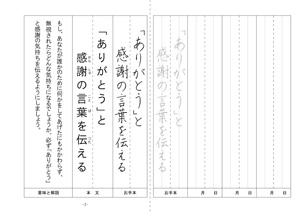 もし、あなたが誰かのために何かをしてあげたにもかかわらず、
無視されたらどんな気持ちになるでしょうか。必ず「ありがとう」
と感謝の気持ちを伝えるようにしましょう。
意味と解説
「ありがとう」と
感謝の言葉を伝える
かんしゃ
ことば
つた
本文
「ありがとう」と
感謝の言葉を伝える
お手本
「ありがとう」と
感謝の言葉を伝える
お手本
月 日
月 日
月 日
月 日
-2-